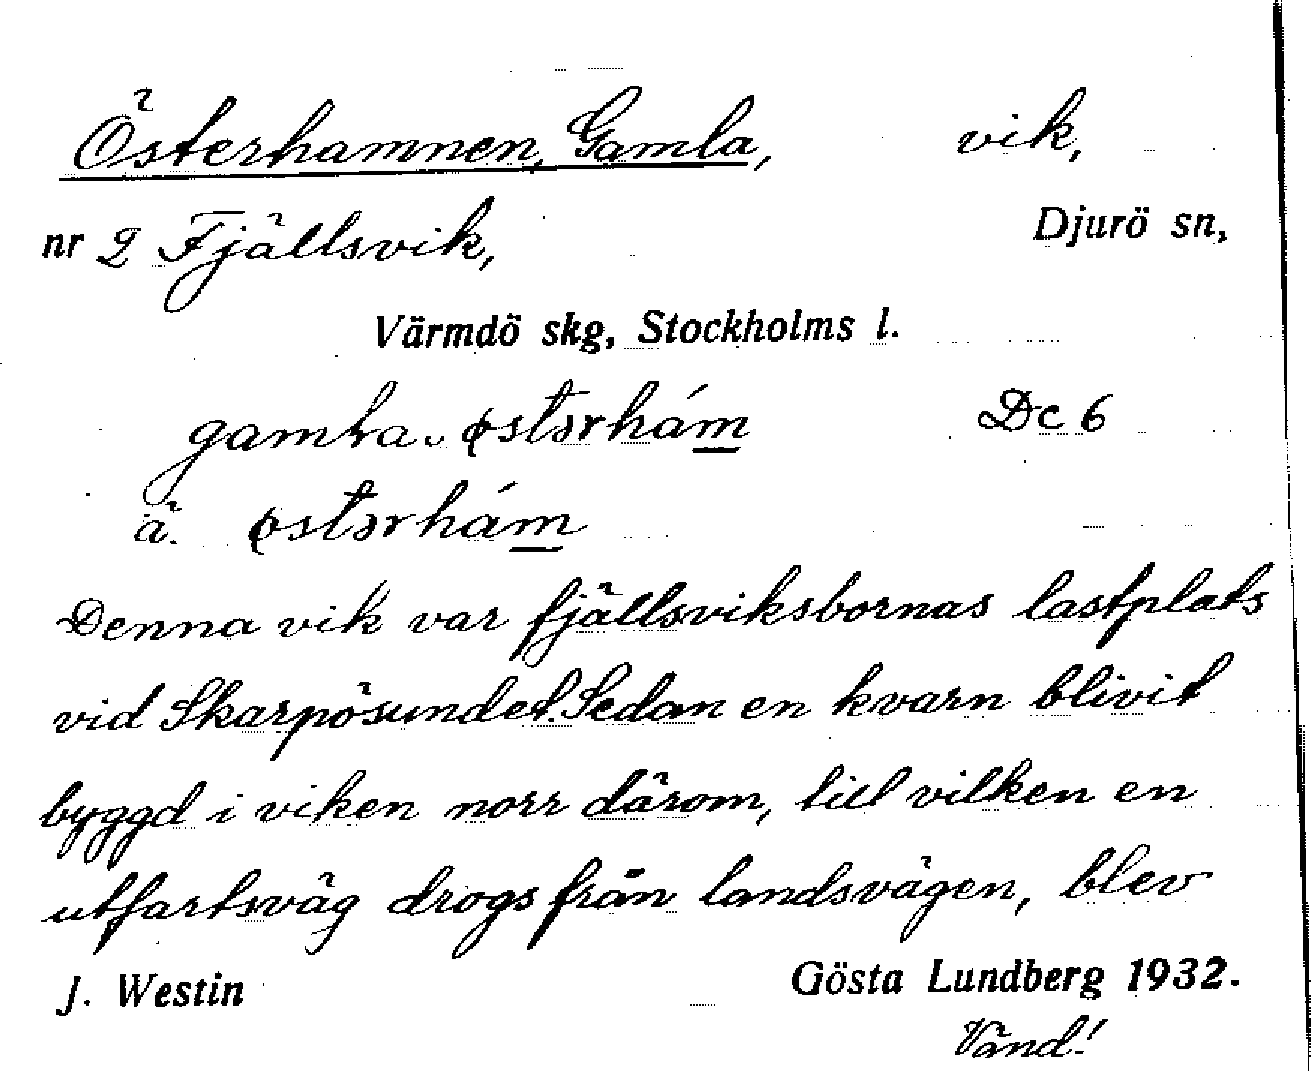 Österhamnen, Gamla, vik,
nr 2 Fjällsvik, Djurö sn,
Värmdö skg, Stockholms l.
gamla østərhám̲ Dc 6
ä. østərhám̲
Denna vik var fjällsviksbornas lastplats
vid Skarpösundet. Sedan en kvarn blivit
byggd i viken norr därom, till vilken en
utfartsväg drogs från landsvägen, blev
J. Westin Gösta Lundberg 1932.
Vänd!